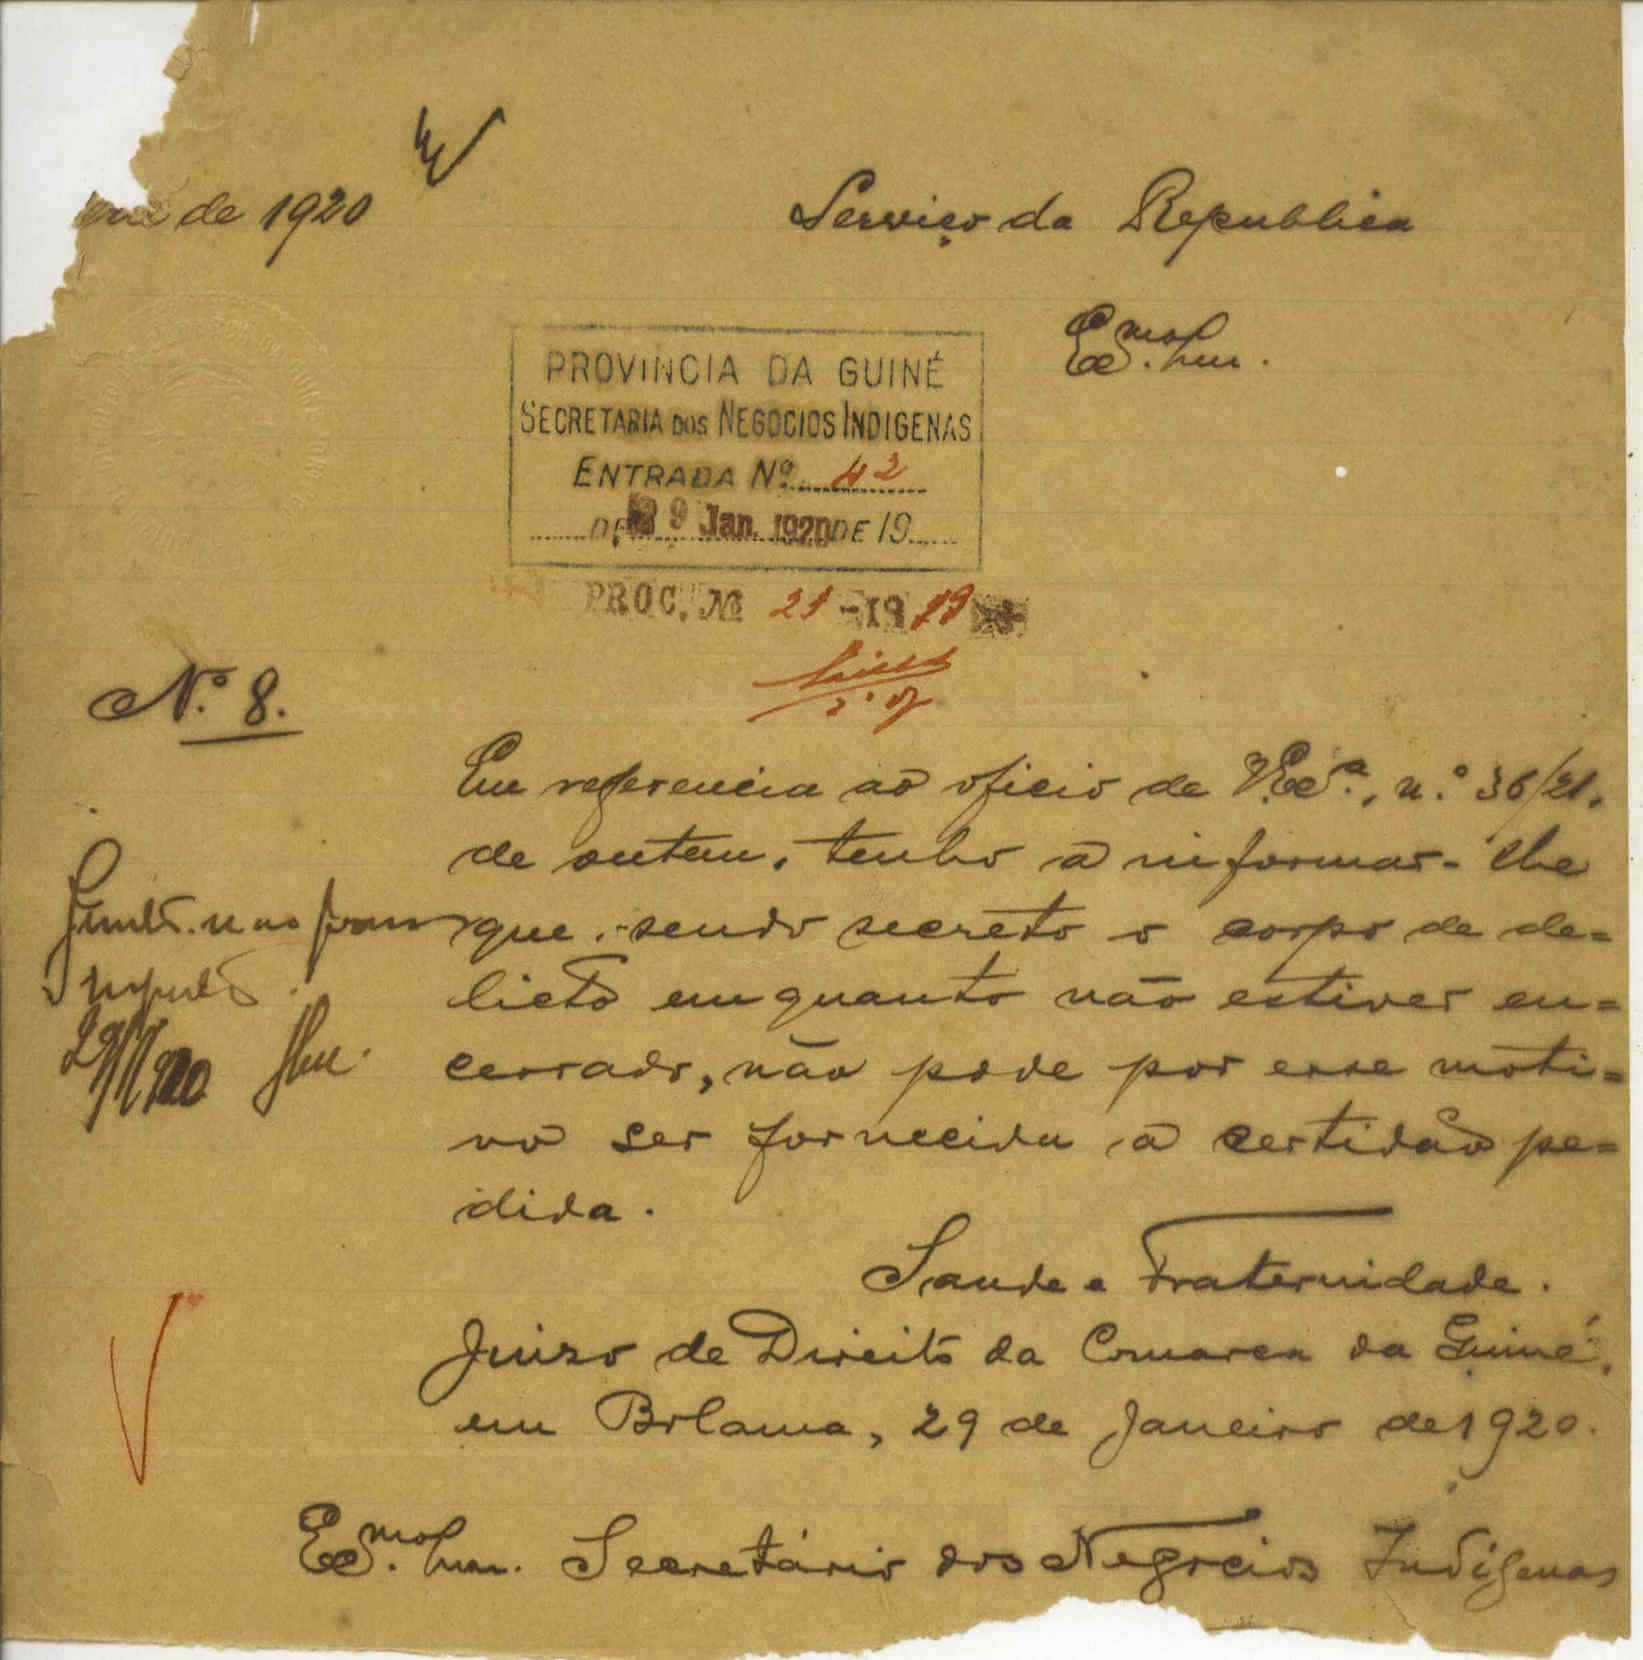 de 1920
Serviço da Republica
Ex.mo Snr.
PROVINCIA DA GUINÉ
SECRETARIA DOS NEGOCIOS INDIGENAS
ENTRADA Nº 42
DE 29 Jan. 1920 DE 19
PROC. Nº 21 - 1919
N.º 8.
Em referencia ao oficio de V. Ex.ª, n.º 36/21,
de ontem, tenho a informar-lhe
que, sendo secreto o corpo de de=
licto emquanto não estiver en=
cerrado, não pode por esse moti=
vo ser fornecida a certidão pe=
dida.
29/1/920
Saude e Fraternidade.
Juizo de Direito da Comarca da Guiné,
em Bolama, 29 de Janeiro de 1920.
Ex.mo Snr. Secretário dos Negocios Indigenas